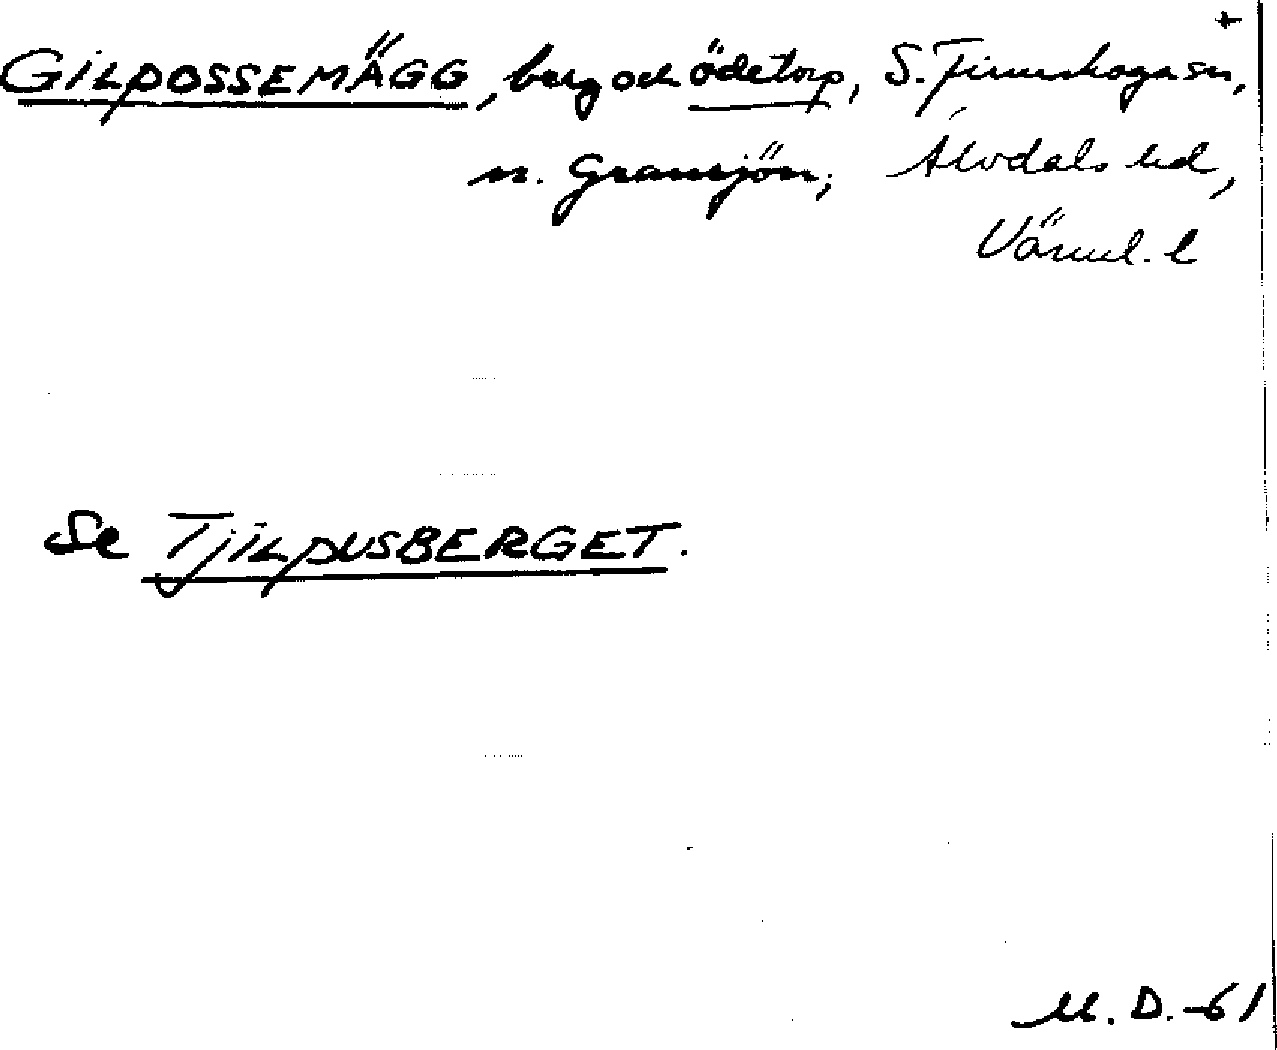 +
GILPOSSEMÄGG, berg och ödetorp, S. Finnskoga sn,
n. Gransjön; Älvdals hd,
Värml. l
Se TJILPUSBERGET.
M. D. -61